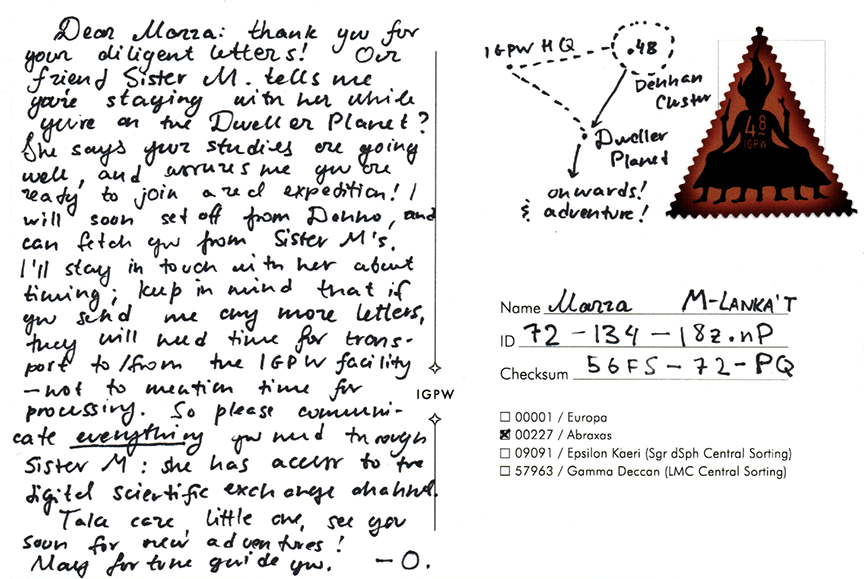 Dear Marza: thank you for
your diligent letters! Our
friend Sister M. tells me
you're staying with her while
you're on the Dweller Planet?
She says your studies are going
well, and assures me you are
ready to join a real expedition! I
will soon set off from Denno, and
can fetch you from Sister M's.
I'll stay in touch with her about
timing; keep in mind that if
you send me any more letters,
they will need time for trans-
port to/from the IGPW facility
—not to mention time for
processing. So please communi-
cate everything you need through
Sister M: she has access to the
digital scientific exchange channel.
Take care, little one, see you
soon for new adventures!
May fortune guide you. —O.
IGPW
IGPW HQ
.48
Denhan
Cluster
Dweller
Planet
onwards!
& adventure!
48
IGPW
Name Marza M-LANKA'T
ID 72-134-18z.nP
Checksum 56FS-72-PQ
00001 / Europa
00227 / Abraxas
09091 / Epsilon Kaeri (Sgr dSph Central Sorting)
57963 / Gamma Deccan (LMC Central Sorting)